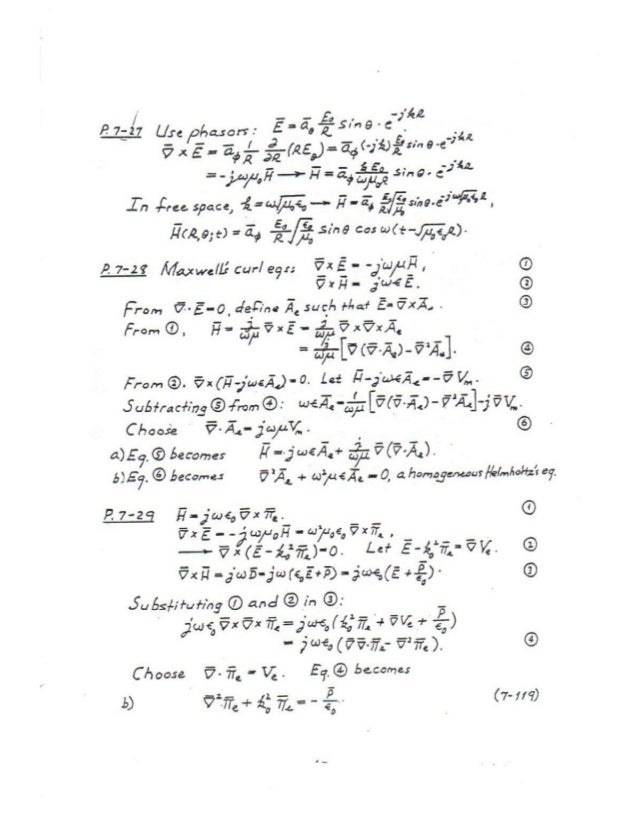 P.7-27 Use phasors: Ē = ā_θ E₀/R sin θ · e^{-jkR}
∇̄ x Ē = ā_φ 1/R ∂/∂R (RE_θ) = ā_φ (-jk) E₀/R sin θ · e^{-jkR}
= -jωμ₀H̄ → H̄ = ā_φ k E₀/ωμ₀R sin θ · e^{-jkR}
In free space, k = ω√μ₀ε₀ → H̄ = ā_φ E₀/R √ε₀/μ₀ sin θ · e^{-jω√μ₀ε₀R},
H̄(R,θ;t) = ā_φ E₀/R √ε₀/μ₀ sin θ cos ω(t-√μ₀ε₀R).
P.7-28 Maxwell's curl eqs: ∇̄ x Ē = -jωμH̄, ①
∇̄ x H̄ = jωεĒ. ②
From ∇̄·Ē = 0, define Ā_e such that Ē = ∇̄ x Ā_e. ③
From ①, H̄ = j/ωμ ∇̄ x Ē = j/ωμ ∇̄ x ∇̄ x Ā_e
= j/ωμ [∇̄(∇̄·Ā_e) - ∇̄²Ā_e]. ④
From ②, ∇̄ x (H̄ - jωεĀ_e) = 0. Let H̄ - jωεĀ_e = -∇̄V_m. ⑤
Subtracting ⑤ from ④: ωεĀ_e = 1/ωμ [∇̄(∇̄·Ā_e) - ∇̄²Ā_e] - j∇̄V_m.
Choose ∇̄·Ā_e = jωμV_m. ⑥
a) Eq. ⑤ becomes H̄ = jωεĀ_e + j/ωμ ∇̄(∇̄·Ā_e).
b) Eq. ⑥ becomes ∇̄²Ā_e + ω²μεĀ_e = 0, a homogeneous Helmholtz's eq.
P.7-29 H̄ = jωε₀ ∇̄ x π̄_e. ①
∇̄ x Ē = -jωμ₀H̄ = ω²μ₀ε₀ ∇̄ x π̄_e,
→ ∇̄ x (Ē - k₀²π̄_e) = 0. Let Ē - k₀²π̄_e = ∇̄V_e. ②
∇̄ x H̄ = jωD̄ = jω(ε₀Ē + P̄) = jωε₀(Ē + P̄/ε₀). ③
Substituting ① and ② in ③:
jωε₀ ∇̄ x ∇̄ x π̄_e = jωε₀(k₀²π̄_e + ∇̄V_e + P̄/ε₀)
= jωε₀(∇̄∇̄·π̄_e - ∇̄²π̄_e). ④
Choose ∇̄·π̄_e = V_e. Eq. ④ becomes
b) ∇̄²π̄_e + k₀²π̄_e = -P̄/ε₀. (7-119)